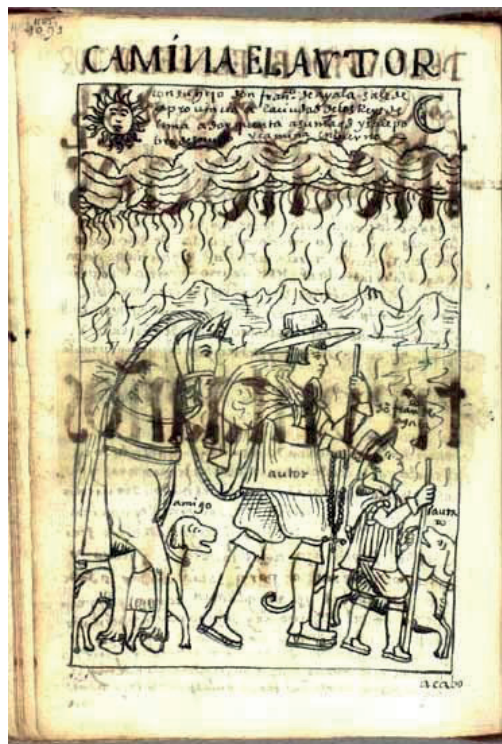 1105
1095
CAMÍNA EL AVTOR
con su hijo don fran.co de ayala sale de
la prouincia a la ciudad de los Reys de
lima a dar quenta a su mag.d y sale po
bre desnudo y camina enbierno
don fran.co de
aya
autor
amigo
lauta
ro
acabo